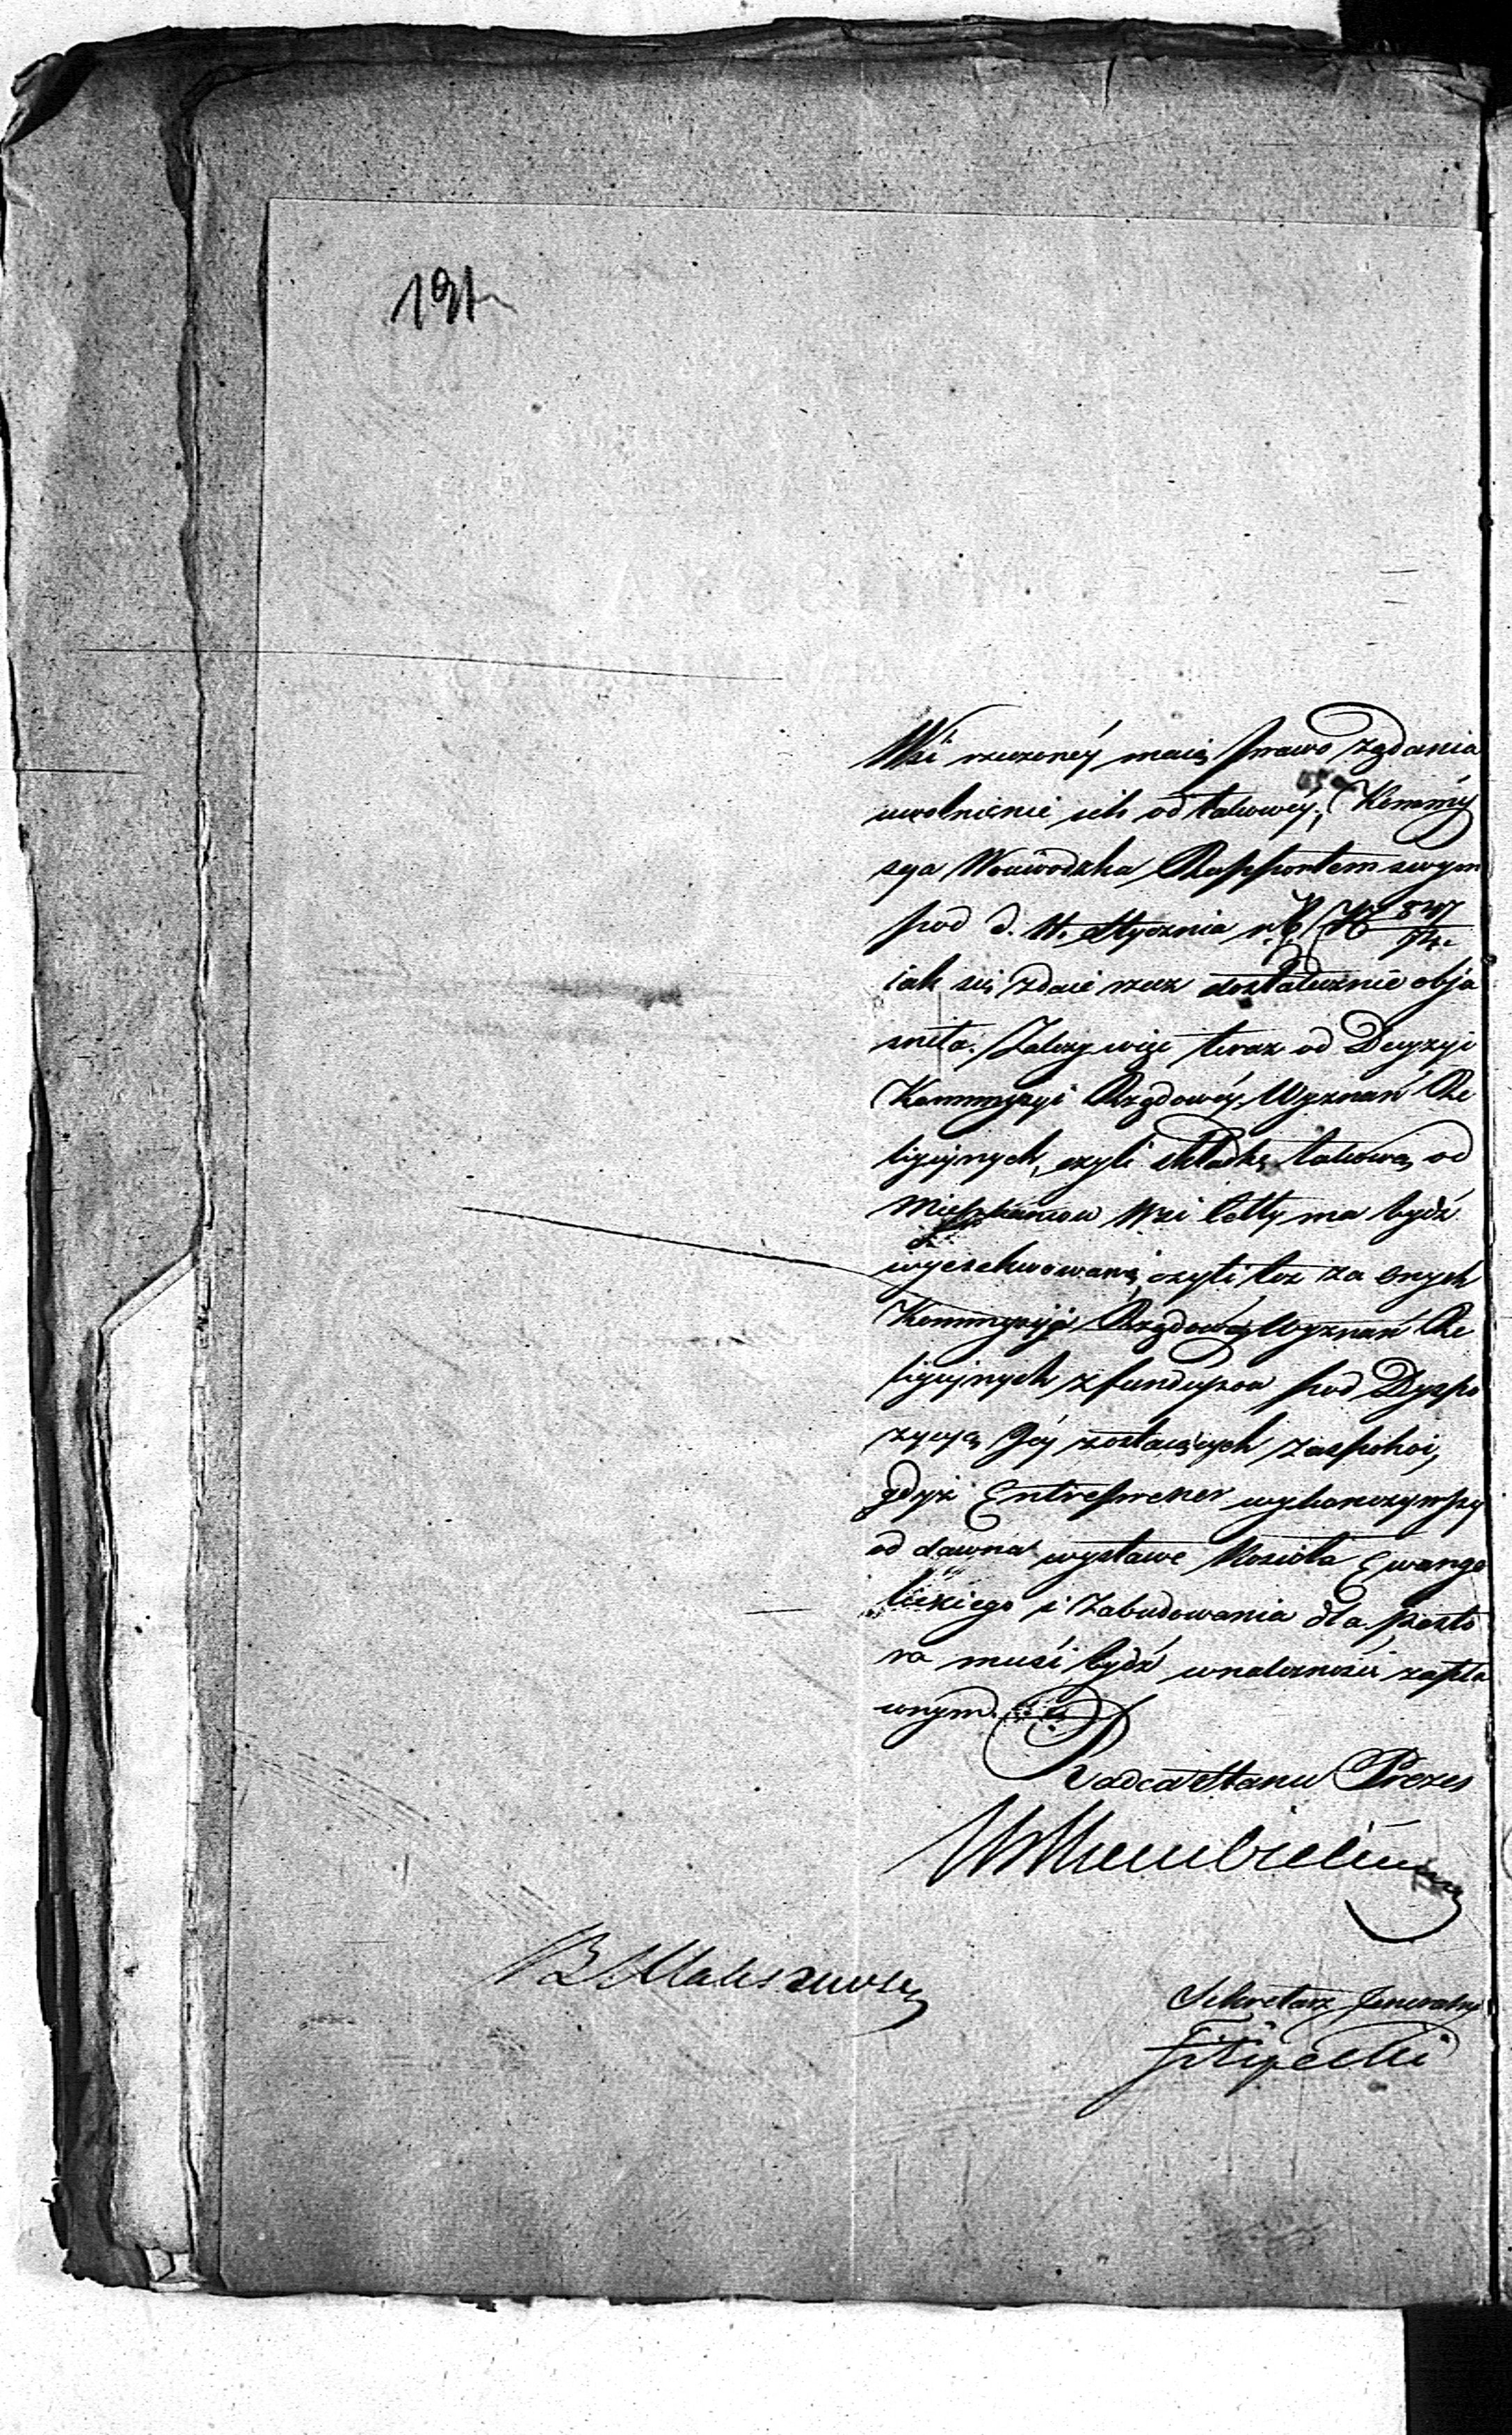 191
Wsi rzeczoney maią prawo żądania
uwolnienie ich od takowey; Kommis
sya Woiewodzka Rapportem swym
pod d. 11. Stycznia r. b. N 847
iak się zdaie rzecz dostatecznie obja
sniła. Zależy więc teraz od Decyzyi
Kommissyi Rządowéy Wyznań Re
ligijnych, czyli składkę takową od
Mieszkancow Wsi Cetty ma bydź
wyexekwowaną, czyli też za onych
Kommissyja Rządowa Wyznań Re
ligijnych z funduszow pod Dyspo
zycyą Jéy zostaiących zaspokoi,
gdyż Entreprener wykonczywszy
od dawna wystawe Koscioła Ewange
lickiego i Zabudowania dla Pasto
ra musi bydź w należności zapła
conym.
Radca Stanu Prezes
B Maliszewski
Sekretarz Jeneralny
Filipecki